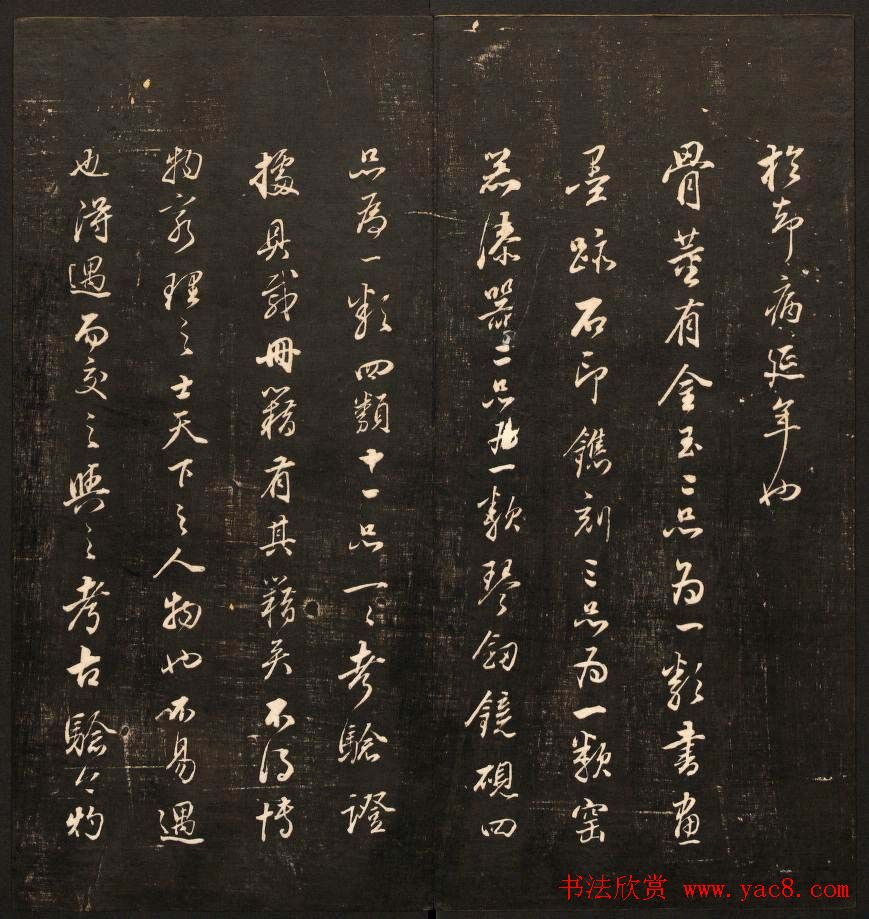 於却病延年也
骨董有金玉二品为一類書畫
墨跡石印鐫刻三品为一類窑
器漆器二品為一類琴劒鏡硯四
品為一類四類十一品一一考驗證
據具載冊籍有其籍矣不得博
物窮理之士天下之人物也不易遇
也得遇而交之與之考古驗今物
书法欣赏 www.yac8.com